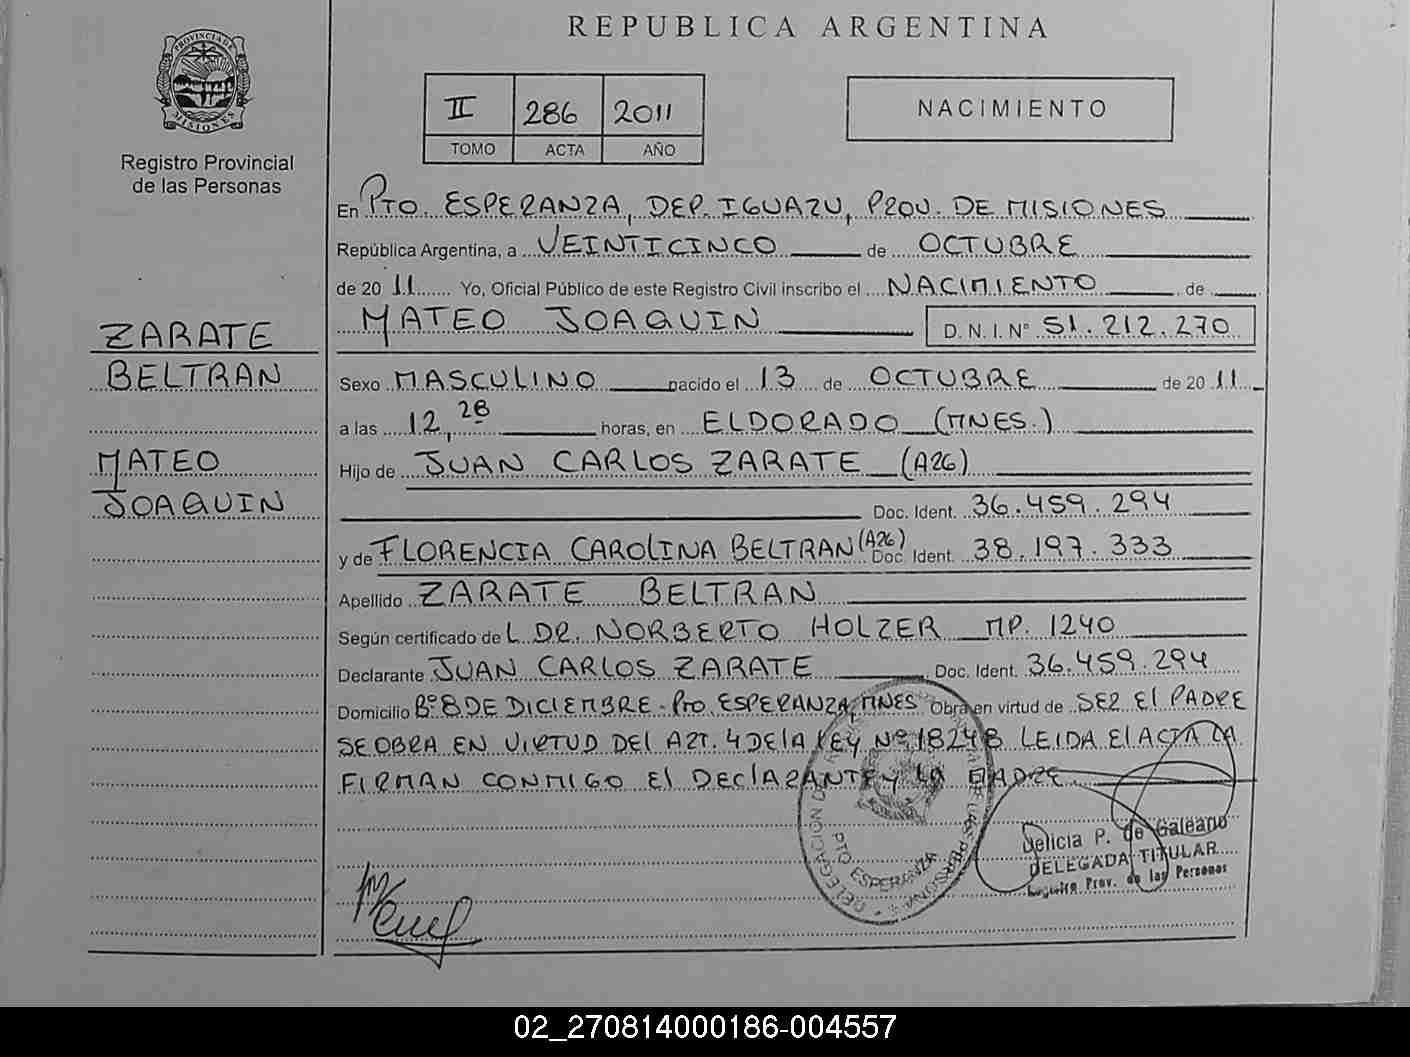 REPUBLICA ARGENTINA
PROVINCIA DE
MISIONES
Registro Provincial
de las Personas
II 286 2011
TOMO ACTA AÑO
NACIMIENTO
En PTO. ESPERANZA, DEP. IGUAZU, PROV. DE MISIONES
República Argentina, a VEINTICINCO de OCTUBRE
de 20 11 Yo, Oficial Público de este Registro Civil inscribo el NACIMIENTO de
MATEO JOAQUIN D.N.I. Nº 51.212.270
ZARATE
BELTRAN
MATEO
JOAQUIN
Sexo MASCULINO nacido el 13 de OCTUBRE de 20 11
a las 12,28 horas, en ELDORADO (MNES.)
Hijo de JUAN CARLOS ZARATE (A26)
Doc. Ident. 36.459.294
y de FLORENCIA CAROLINA BELTRAN (A26) Doc. Ident. 38.197.333
Apellido ZARATE BELTRAN
Según certificado de L DR. NORBERTO HOLZER MP. 1240
Declarante JUAN CARLOS ZARATE Doc. Ident. 36.459.294
Domicilio Bº 8 DE DICIEMBRE - Pto. ESPERANZA, MNES Obra en virtud de SER El PADRE
SE OBRA EN VIRTUD DEl ART. 4 DE lA lEY Nº 18248 LEIDA El ACTA LA
FIRMAN CONMIGO El DEClARANTE y lA MADRE
DELEGACIÓN
PTO ESPERANZA
Delicia P. de Galeano
DELEGADA TITULAR
Registro Prov. de las Personas
02_270814000186-004557